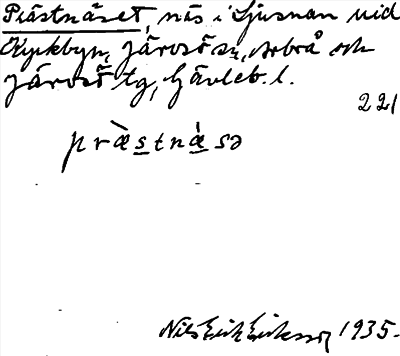 Prästnäset, näs i Ljusnan vid
Kyrkbyn, Järvsö sn, Arbrå och
Järvsö tg, Gävleb. l.
221
præ̀stnæ̀sə
Nils Erik Eriksson 1935.